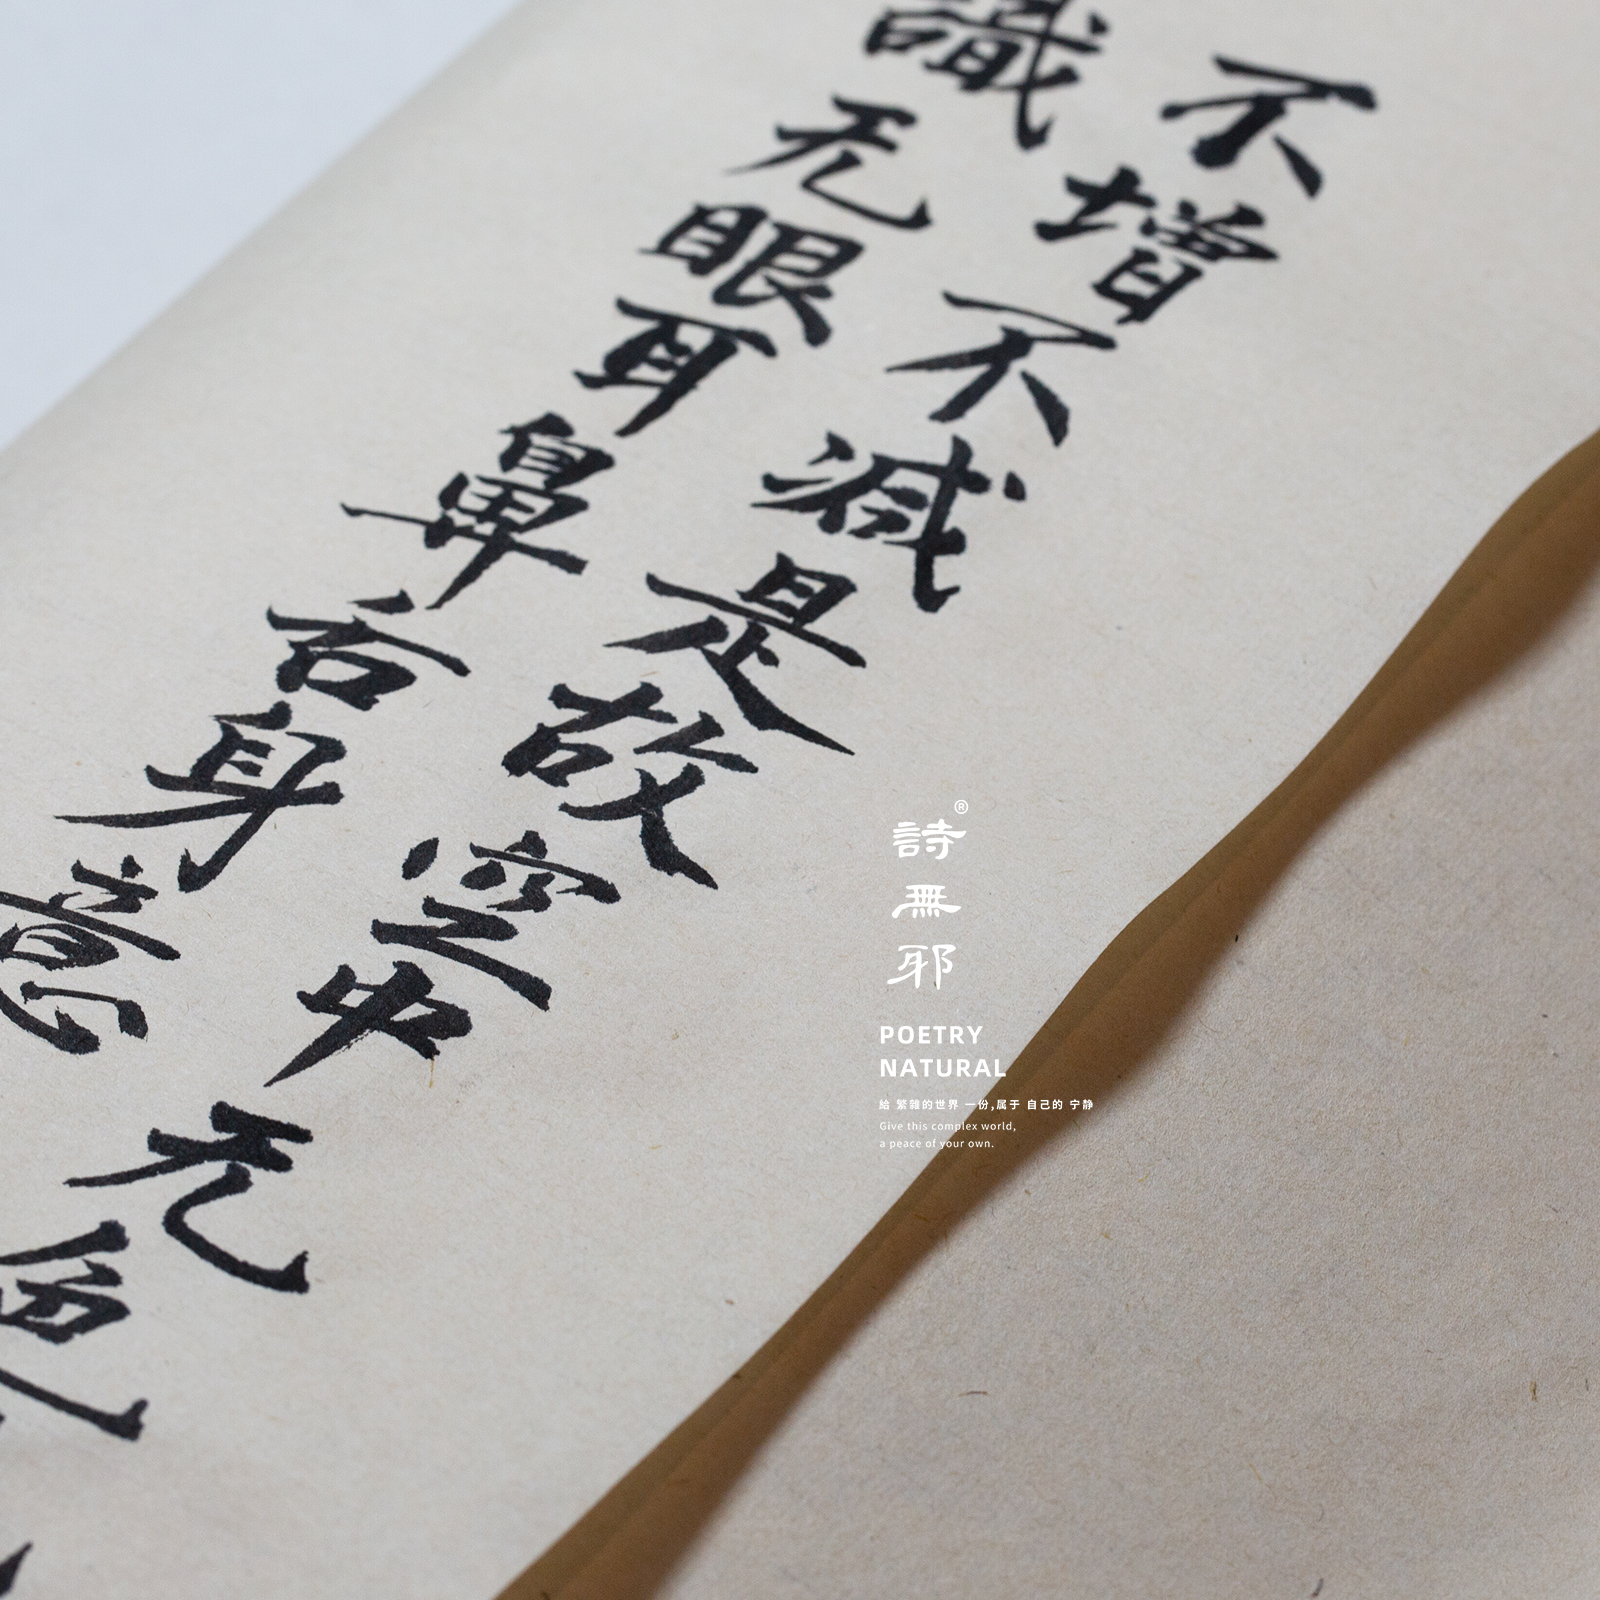 不增不減是故空中无色
識无眼耳鼻舌身意
詩無邪®
POETRY
NATURAL
給 繁雜的世界 一份,属于 自己的 宁静
Give this complex world,
a peace of your own.